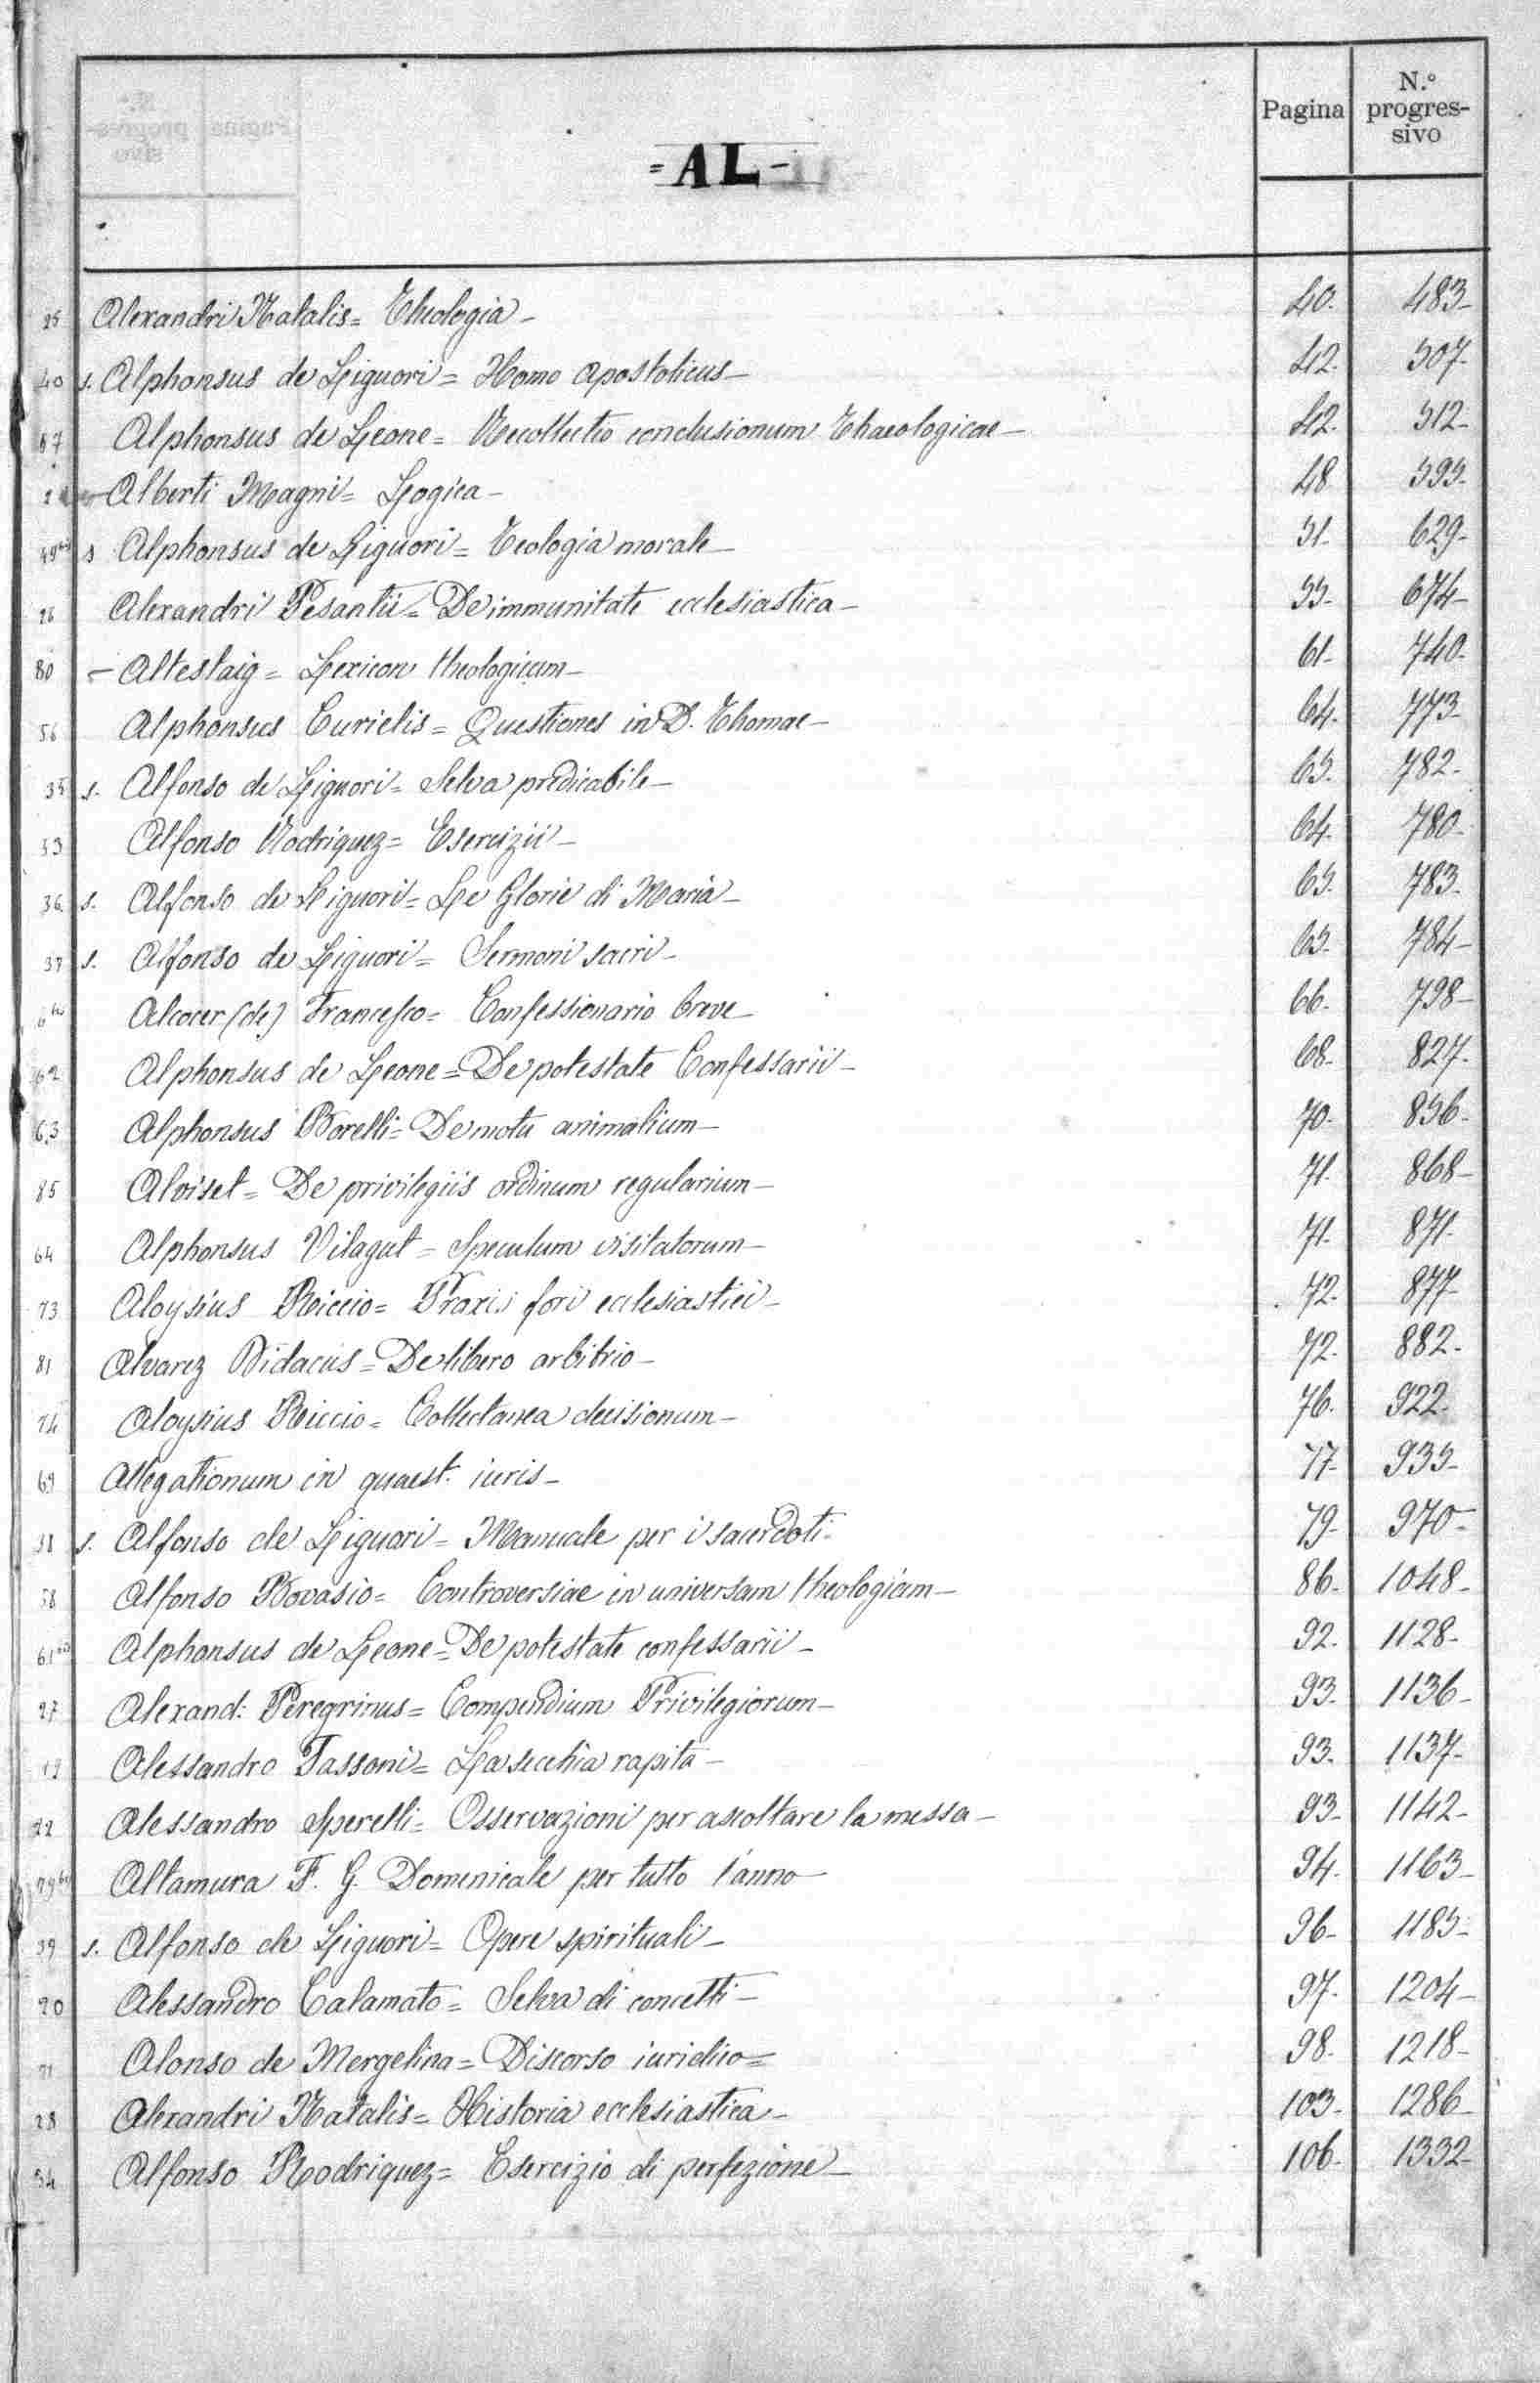 Pagina
N.º progres-
sivo
= AL -
25 Alexandri Natalis = Theologia - 40. 483-
40 s. Alphonsus de Liguori = Homo apostolicus - 42. 507-
67 Alphonsus de Leone = Recollectio conclusionum Thaeologicae - 42. 512-
Alberti Magni = Logica - 48 595-
49 bis s Alphonsus de Liguori = Teologia morale - 51- 629-
26 Alexandri Pesantii = De immunitate ecclesiastica - 55- 674-
80 - Altestaig = Lexicon theologicum - 61- 740-
56 Alphonsus Curielis = Questiones in D. Thomae - 64. 773-
35 s. Alfonso de Liguori = Selva predicabile - 65. 782-
53 Alfonso Rodriguez = Esercizii - 64. 780-
36 s. Alfonso de Liguori = Le Glorie di Maria - 65. 783-
37 s. Alfonso de Liguori = Sermoni sacri - 65. 784-
6 bis Alcocer (de) Francesco = Confessionario breve - 66. 798-
62 Alphonsus de Leone = De potestate Confessarii - 68- 827-
63 Alphonsus Borelli = De motu animalium - 70- 856-
85 Aloiset = De privilegiis ordinum regularium - 71. 868-
64 Alphonsus Vilagut = Speculum visitatorum - 71- 871-
73 Aloysius Riccio = Praxis fori ecclesiastici - 72- 877-
81 Alvarez Didacus = De libero arbitrio - 72- 882-
74 Aloysius Riccio = Collectanea decisionum - 76. 922-
69 Allegationum in quaest. iuris - 77- 935-
38 s. Alfonso de Liguori = Manuale per i sacerdoti - 79- 970-
58 Alfonso Bovasio = Controversiae in universam theologiam - 86- 1048-
61 bis Alphonsus de Leone = De potestate confessarii - 92. 1128-
27 Alexand: Peregrinus = Compendium Privilegiorum - 93. 1136-
19 Alessandro Tassoni = La secchia rapita - 93. 1137-
22 Alessandro Sperelli = Osservazioni per ascoltare la messa - 93- 1142-
79 bis Altamura F. G. Domenicale per tutto l'anno - 94- 1163-
39 s. Alfonso de Liguori = Opere spirituali - 96- 1185-
20 Alessandro Calamato = Selva di concetti - 97- 1204-
71 Alonso de Mergelina = Discorso iuridico = 98- 1218-
28 Alexandri Natalis = Historia ecclesiastica - 103- 1286-
54 Alfonso Rodriguez = Esercizio di perfezione - 106- 1332-